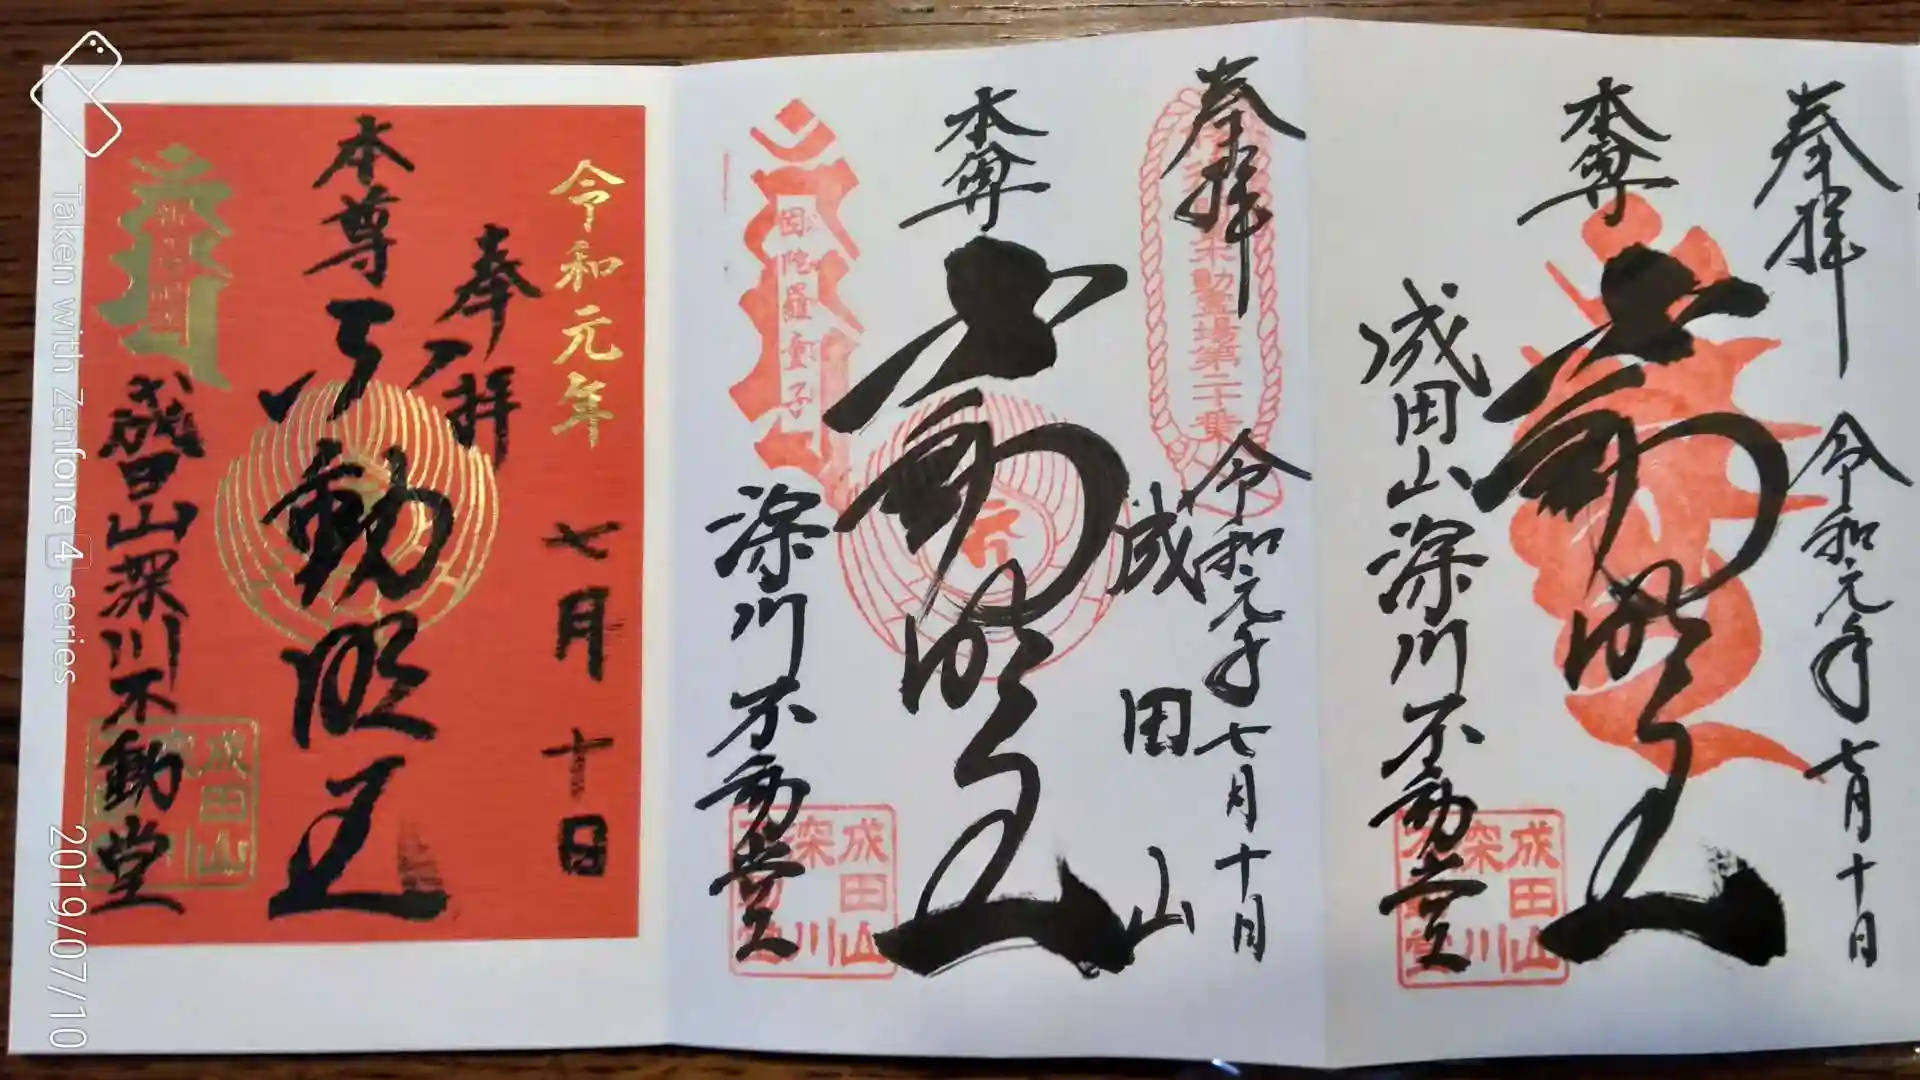 令和元年
七月十日
奉拝
本尊
不動明王
成田山深川不動堂
成田山
奉拝
不動霊場第二十番
令和元年七月十日
成田山
本尊
不動明王
因陀羅童子
深川不動堂
成田山
深川
不動堂
奉拝
令和元年七月十日
本尊
不動明王
成田山深川不動堂
成田山
深川
不動堂
Taken with Zenfone 4 series
2019/07/10